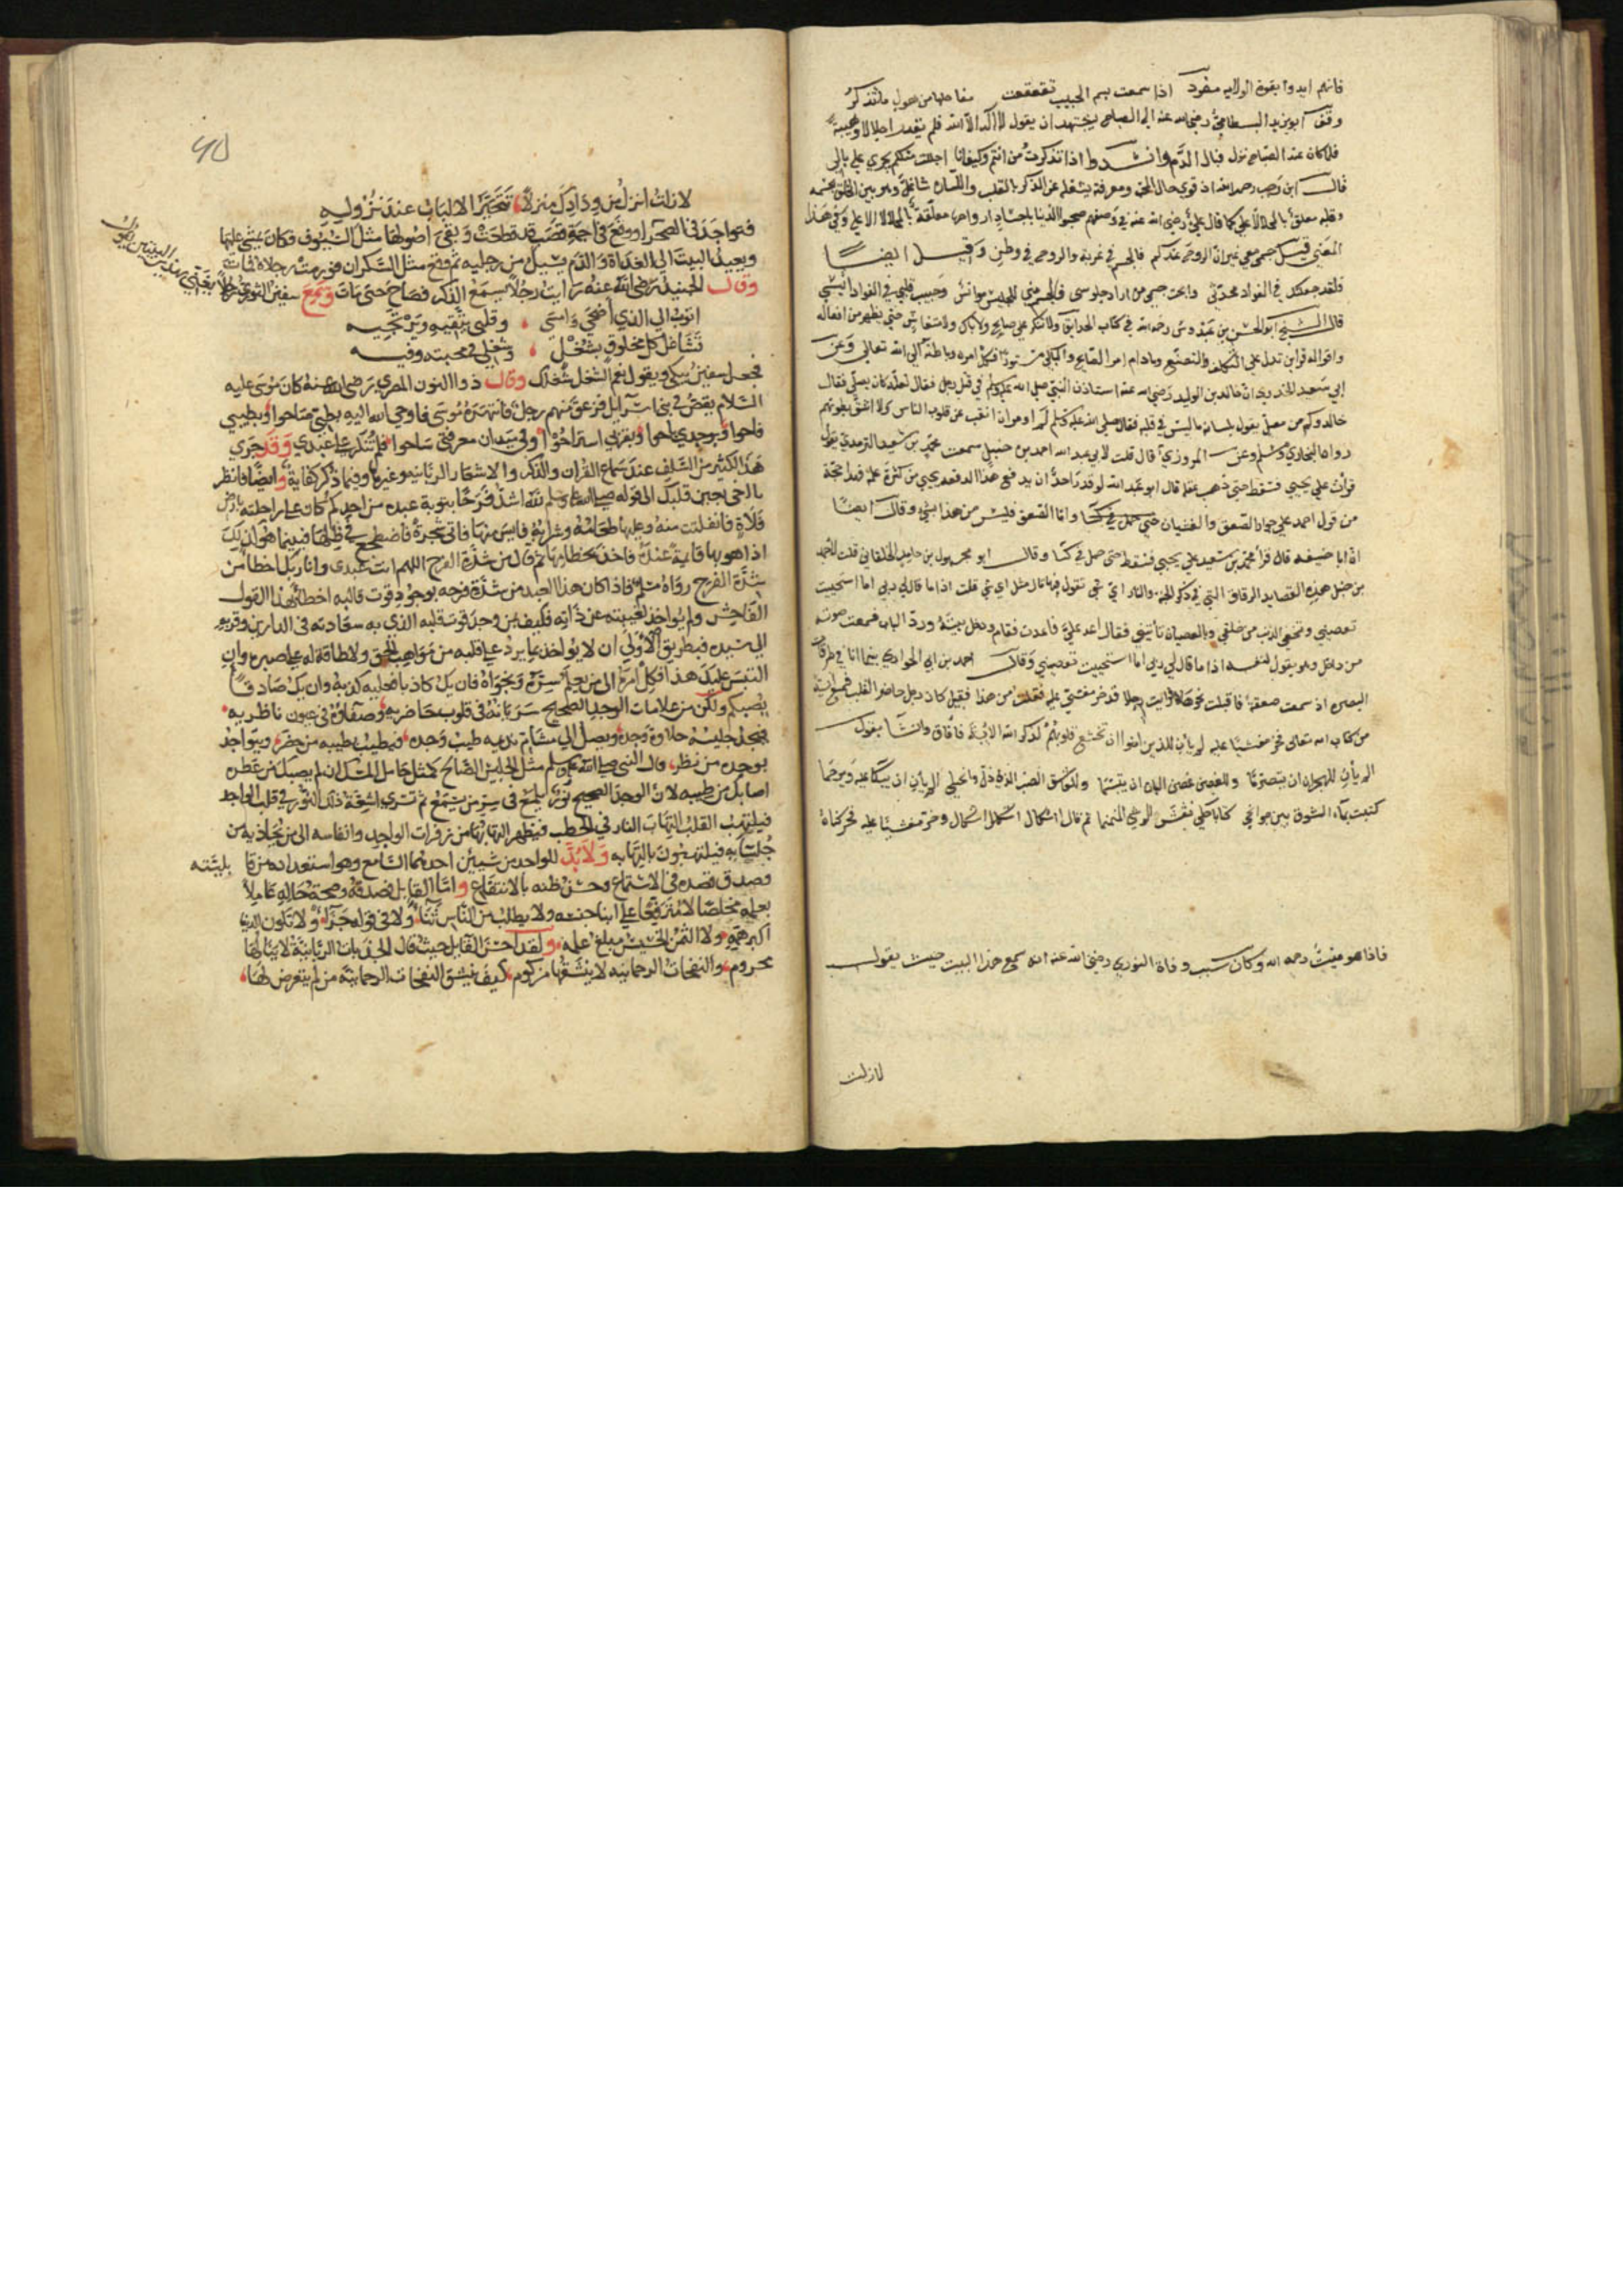 فانهم ايدوا بقوة الولايه مفرد اذا سمعت بسم الحبيب تقعقعت مفاصلها من هول ما تتذكر
وقف ابو يزيد البسطامي رضي الله عنه الي الصباح يجتهد ان يقول لا اله الا الله فلم يقدر اجلالا وهيبة
فلما كان عند الصباح نزل فبال الدم وانشدوا اذا تذكرت من انتم وكيف انا اجللت مثلكم يجري علي بالي
قال ابن رجب رحمه الله اذ قوي حال المحب ومعرفته يشغله عن الذكر بالقلب واللسان شاغل وهو بين الخلق بجسمه
وقلبه معلق بالمحل الاعلي كما قال علي رضي الله عنه في وصفهم صحبوا الدنيا باجساد ارواحها معلقة بالمحل الاعلي وفي هذا
المعني قيل جسمي معي غير ان الروح عندكم فالجسم في غربة والروح في وطن وقيل ايضا
فلقد جعلتك في الفواد محدثي وابحت جسمي من اراد جلوسي فالجسم مني للجليس موانس وحبيب قلبي في الفواد انيسي
قال الشيخ ابو الحسن بن عبدوس رحمه الله في كتاب الحدايق ولا تنكر علي صايح ولا باك ولا متغاش حتي يظهر من افعاله
واقواله قراين تدل علي التكلف والتصنع وما دام امر الصايح والباكي مستور فكل امره وباطنه الي الله تعالي وعن
ابي سعيد الخدري ان خالد بن الوليد رضي الله عنه استاذن النبي صلي الله عليه وسلم في قتل رجل فقال لعله كان يصلي فقال
خالد وكم من مصل يقول بلسانه ما ليس في قلبه فقال صلي الله عليه وسلم لم اومر ان انقب عن قلوب الناس ولا اشق بطونهم
رواه البخاري ومسلم وعن المروزي قال قلت لابي عبد الله احمد بن حنبل سمعت محمد بن سعيد الترمذي يقول
قرات علي يحيي فسقط حتي ذهب عقله قال ابو عبد الله لو قدر احد ان يدفع هذا لدفعه يحيي من كثرة علمه فهذا حجة
من قول احمد علي جواز الصعق والغشيان حتي حمل في كسا واما الصعق فليس من هذا بشي وقال ايضا
بن حنبل هذه القصايد الرقاق التي في ذكر الجنه والنار اي شي تقول فيها قال مثل اي شي قلت اذا ما قال لي ربي اما استحييت
تعصيني وتخفي الذنب من خلقي وبالعصيان تاتيني فقال اعد علي فاعدت فقام ودخل بيته ورد الباب فسمعت صوته
من داخل وهو يقول لنفسه اذا ما قال لي ربي اما استحييت تعصيني وقال احمد بن ابي الحواري بينما انا في طرقات
البصره اذ سمعت صعقة فاقبلت نحوها فرايت رجلا قد خر مغشي عليه فقلت من هذا فقيل كان رجل حاضر القلب فسمع اية
من كتاب الله تعالي فخر مغشيا عليه الم يان للذين امنوا ان تخشع قلوبهم لذكر الله الاية فافاق وانشا يقول
الم يان للهجران ان يتصرما وللغصن غصن البان ان يتبسما وللعاشق الصب الذي ذاب وانحني الم يان ان يبكا عليه ويرحما
كتبت بماء الشوق بين جوانحي كتابا حكي نقش الوشي المنمنما ثم قال اشكال اشكال اشكال وخر مغشيا عليه فحركناه
فاذا هو ميت رحمه الله وكان سبب وفاة النوري رضي الله عنه انه سمع هذا البيت حيث يقول
لازلت
لازلت انزل من ودادك منزلا تتحير الالباب عند نزوله
فتواجد في الصحرا ووقع في اجمة قصب قد قطعت وبقي اصولها مثل السيوف فكان يمشي عليها
ويعيد البيت الي الغداة والدم يسيل من رجليه ثم وقع مثل السكران فورمت رجلاه فمات
وقال الجنيد رضي الله عنه رايت رجلا يسمع الذكر فصاح حتي مات وسمع سفين الثوري رجلا
اتوب الي الذي اضحي وامسي وقلبي يتقيه ويرتجيه
تشاغل كل مخلوق بشغل وشغلي في محبته وفيه
فجعل سفين يبكي ويقول نعم الشغل شغلك وقال ذو النون المصري رضي الله عنه كان موسي عليه
السلام يقص في بني اسرايل فزعق منهم رجل فانتهره موسي فاوحي الله اليه بحبي صاحوا وبطيبي
فاحوا وبوجدي باحوا وبقربي استراحوا وفي ميدان معرفتي ساحوا فلم تنكر علي عبدي وقد جري
هذا لكثير من السلف عند سماع القران والذكر والاشعار الربانيه وغيرها وفيما ذكر كفاية وايضا فانظر
يا اخي بعين قلبك الي قوله صلي الله عليه وسلم لله اشد فرحا بتوبة عبده من احدكم كان علي راحلته بارض
فلاة فانفلتت منه وعليها طعامه وشرابه فايس منها فاتي شجرة فاضطجع في ظلها فبينما هو كذلك
اذا هو بها قايمة عنده فاخذ بخطامها ثم قال من شدة الفرح اللهم انت عبدي وانا ربك اخطا من
شدة الفرح رواه مسلم فاذا كان هذا العبد من شدة فرحه بوجود قوت قالبه اخطا بهذا القول
الفاحش ولم يواخذ لغيبته عن ذاته فكيف بمن وجد قوت قلبه الذي به سعادته في الدارين وقربه
الي سيده فبطريق الاولي ان لا يواخذ بما يرد علي قلبه من مواهب الحق ولا طاقة له علي صبره وان
التبس عليك هذا فكل امره الي من يعلم سره ونجواه فان يك كاذبا فعليه كذبه وان يك صادقا
يصبكم ولكن من علامات الوجد الصحيح سريانه في قلوب حاضريه وصفاؤه في عيون ناظريه
فيجد جليسه حلاوة وجده ويصل الي مشام نديمه طيب وجده فيطيب بطيبه من حضر ويتواجد
بوجده من نظر قال النبي صلي الله عليه وسلم مثل الجليس الصالح كمثل حامل المسك ان لم يصبك من عطره
اصابك من طيبه لان الوجد الصحيح نور يلمع في سر من يستمع ثم تسري اشعة ذلك النور في قلب الواجد
فيلتهب القلب التهاب النار في الحطب فيظهر التهابها من زفرات الواجد وانفاسه الي من يحاذيه من
جلسايه فيلتهبون بالتهابه ولا بد للواحد من شييين احدهما السامع وهو استعداده من قابليته
وصدق قصده في الاستماع وحسن ظنه بالانتفاع واما القايل فصدقه وصحة حاله عاملا
بعلمه مخلصا لا مترفعا علي ابنا جنسه ولا يطلب من الناس ثناء ولا في قوله جزاء ولا تكون الدنيا
اكبر همه ولا الثمن الخسيس مبلغ علمه ولقد احسن القايل حيث قال الجذبات الربانية لا ينالها
محروم والنفحات الرحمانيه لا ينشقها مزكوم كيف ينشق النفحات الرحمانية من لم يتعرض لها